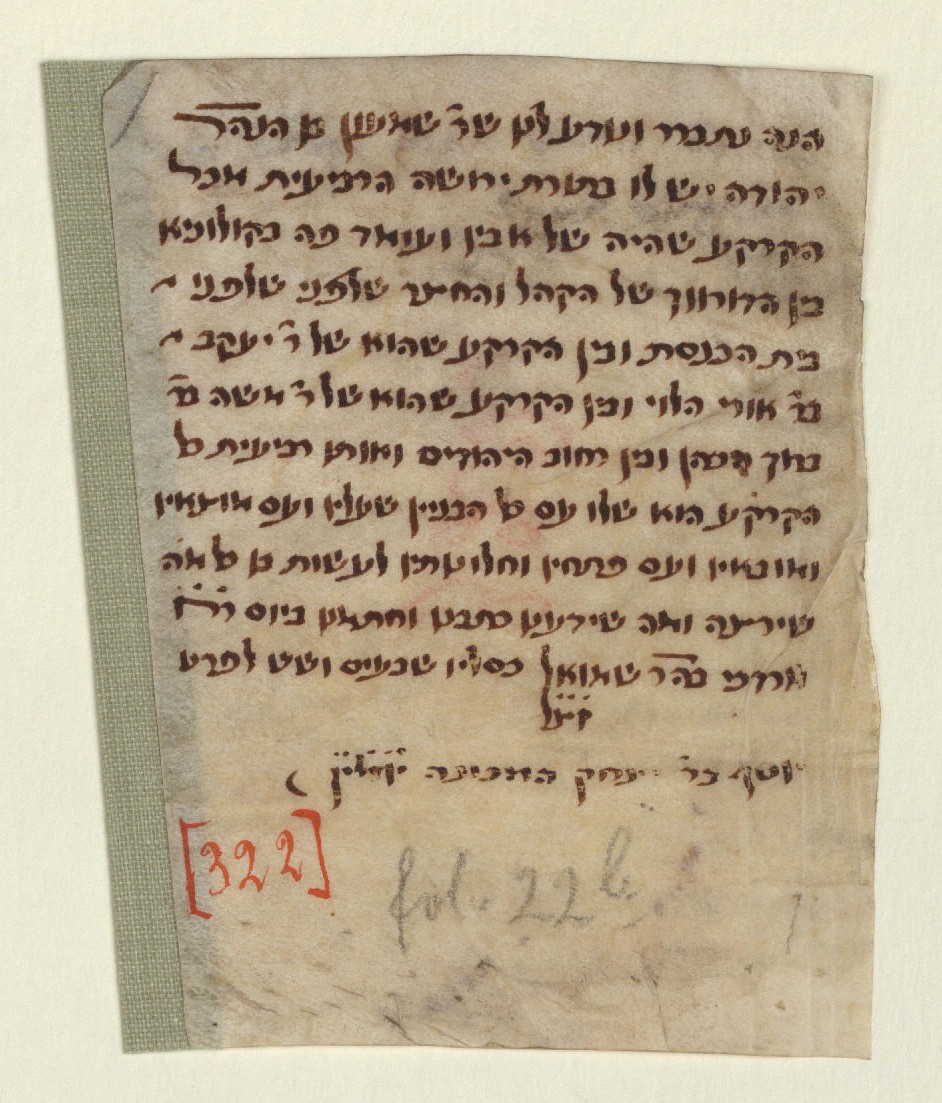 הנה נתברר ונודע לנו שר' שמעון בן הנה"ר
יהודה יש לו בתורת ירושה הרביעית מכל
הקרקע שהיה של אבין ועומד פה בקולוניא
בין הדורוור של הקהל והחצר שלפני שלפני
בית הכנסת ובין הקרקע שהוא של ר' יעקב
בר' אורי הלוי ובין הקרקע שהוא של ר' משה בר'
ברוך הכהן ובין רחוב היהודים ואותו רביעית כל
הקרקע הוא שלו עם כל הבניין שעליו ועם מוצאיו
ומובאיו ועם פתחיו וחלונותיו לעשות בו כל מה
שירצה ומה שידענו כתבנו וחתמנו ביום
כסליו שבעים ושש לפרט
מרדכי בה"ר שמואל
זצ"ל
יוסף בר' יצחק
[322]
fol. 22 b